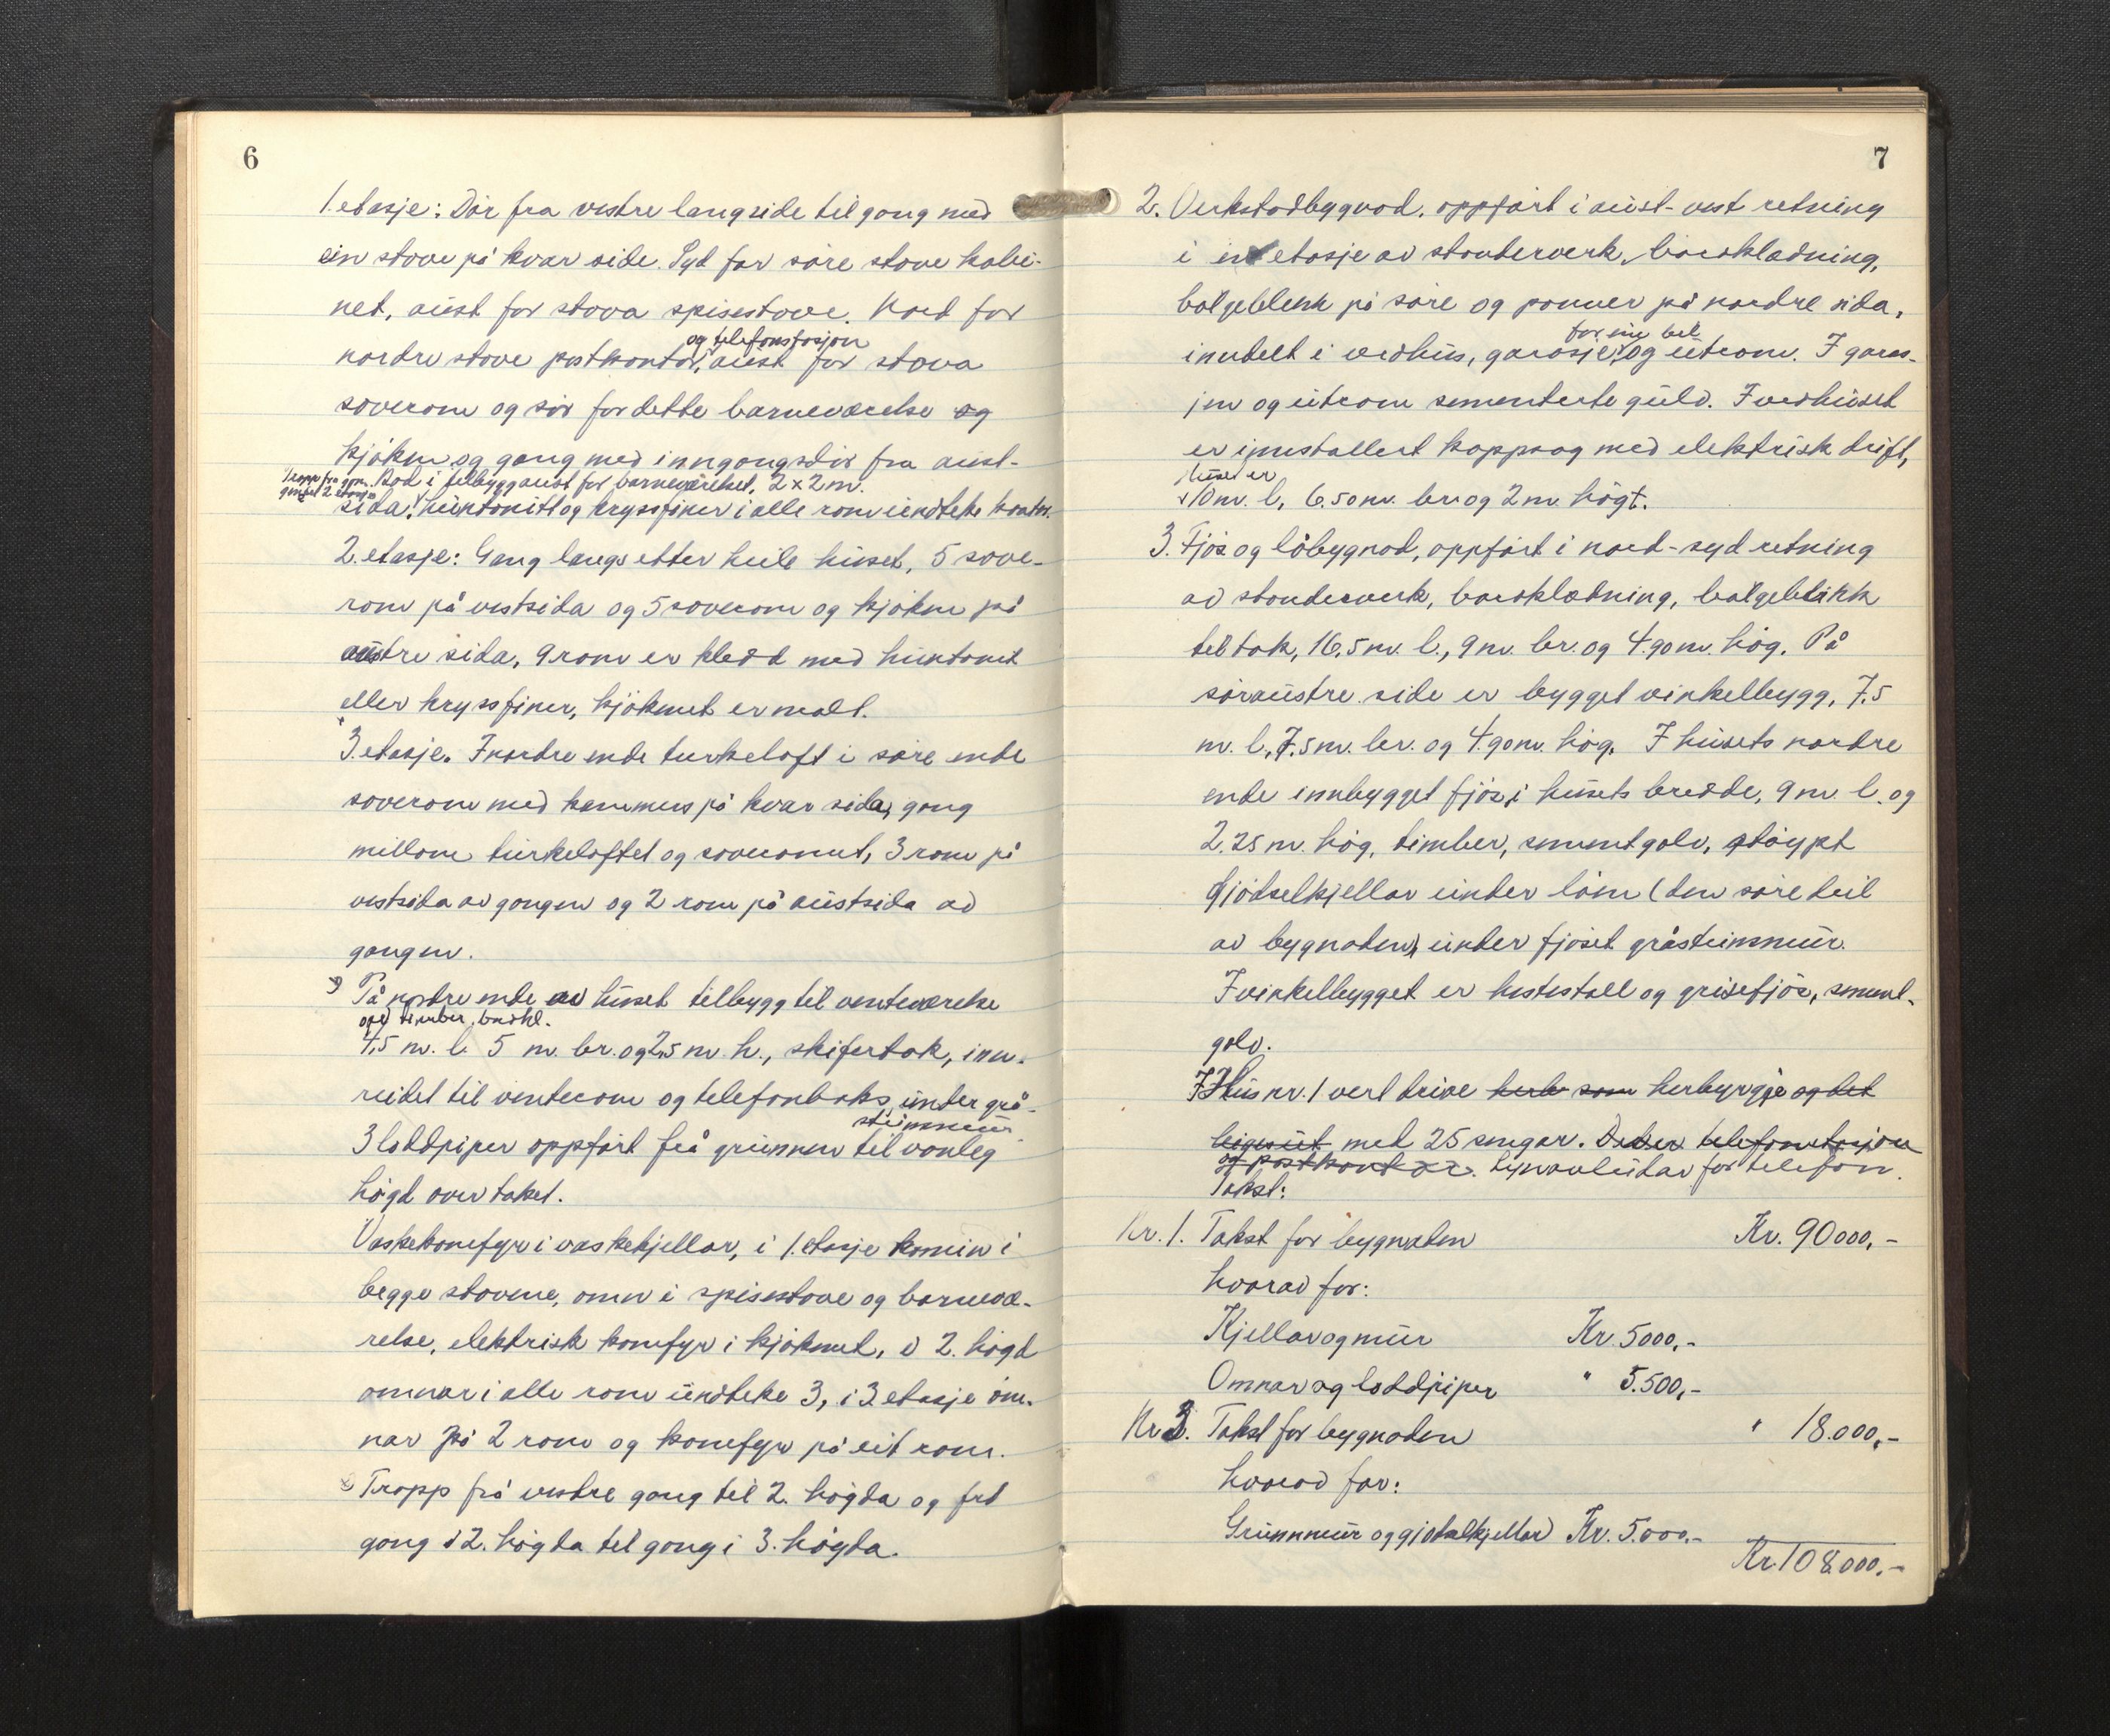 6
1. etasje: Dør fra vestre langside til gang med
ein stove på kvar side. Syd for søre stove kabi-
net, aust for stova spisestove. Nord for
og telefonstasjon
nordre stove postkontor, aust for stova
soverom og sør for dette barneværelse og
kjøken og gang med inngangsdør fra aust-
Bod i tilbygg aust for barneværelset, 2 x 2 m.
sida. Huntonitt og kryssfiner i alle rom undteke kontor.
2. etasje: Gang langs etter heile huset, 5 sove-
rom på vestsida og 5 soverom og kjøken på
austre sida, 9 rom er kledd med huntonit
eller kryssfiner, kjøkenet er malt.
3. etasje. I nordre ende turkeloft i søre ende
soverom med kammers på kvar sida, gang
millom turkeloftet og soverommet, 3 rom på
vestsida av gangen og 2 rom på austsida av
gangen.
På nordre ende av huset tilbygg til venteværelse
opf. timber, bordkl.
4,5 m. l. 5 m. br. og 2,5 m. h., skifertak, inn-
reidet til venterom og telefonboks, under grå-
steinsmur
3 loddpiper oppført frå grunnen til vanleg
høgd over taket.
Vaskekomfyr i vaskekjellar, i 1. etasje kamin i
begge stovene, omn i spisestove og barnevæ-
relse, elektrisk komfyr i kjøkenet, i 2. høgd
omnar i alle rom undteke 3, i 3 etasje om-
nar på 2 rom og komfyr på eit rom.
Tropp frå vestre gang til 2. høgda og frå
gang i 2. høgda til gang i 3. høgda.
7
2. Verkstadbygnad, oppført i aust-vest retning
i en etasje av standerverk, bordkledning,
bølgeblekk på søre og panner på nordre sida,
for ein bil
inndelt i vedhus, garasje og uterom. I garas-
jen og uterom sementerte gulv. I vedhuset
er innstallert kappsag med elektrisk drift,
Huset er
10 m. l, 6.50 m. br. og 2 m. høgt.
3. Fjøs og løbygnad, oppført i nord-syd retning
av standerverk, bordkledning, bølgeblikk
til tak, 16,5 m. l., 9 m. br. og 4.90 m. høg. På
søraustre side er bygget vinkelbygg, 7,5
m. l., 7.5 m. br. og 4.90 m. høg. I husets nordre
ende innbygget fjøs, i husets bredde, 9 m. l. og
2.25 m. høg, timber, sementgolv, støypt
gjødselkjellar under løen (den søre deil
av bygnaden), under fjøset gråsteinsmur.
I vinkelbygget er hestestall og grisefjøs, sement-
golv.
I Hus nr. 1 vert drive herb som herbyrgje og det
leiges ut med 25 sengar. Det er telefonstasjon
og postkontor. Lynavleidar for telefon.
Takst:
Nr. 1. Takst for bygnaden Kr. 90000,-
hvorav for:
Kjellar og mur Kr. 5000,-
Omnar og loddpiper " 5.500,-
Nr. 3. Takst for bygnaden " 18.000,-
hvorav for:
Grunnmur og gjødselkjellar Kr. 5.000,-
Kr. 108000,-